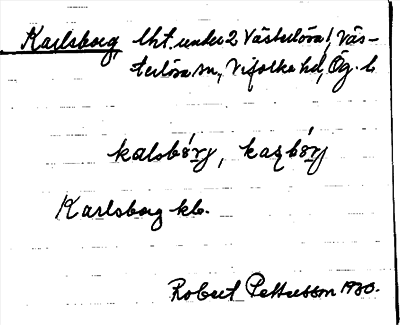 Karlsborg, lht. under 2 Västerlösa 1, Väs-
terlösa sn, Vifolka hd, Ög. l.
kalsbórj, kaʂbórj
Karlsborg kb.
Robert Pettersson 1930.